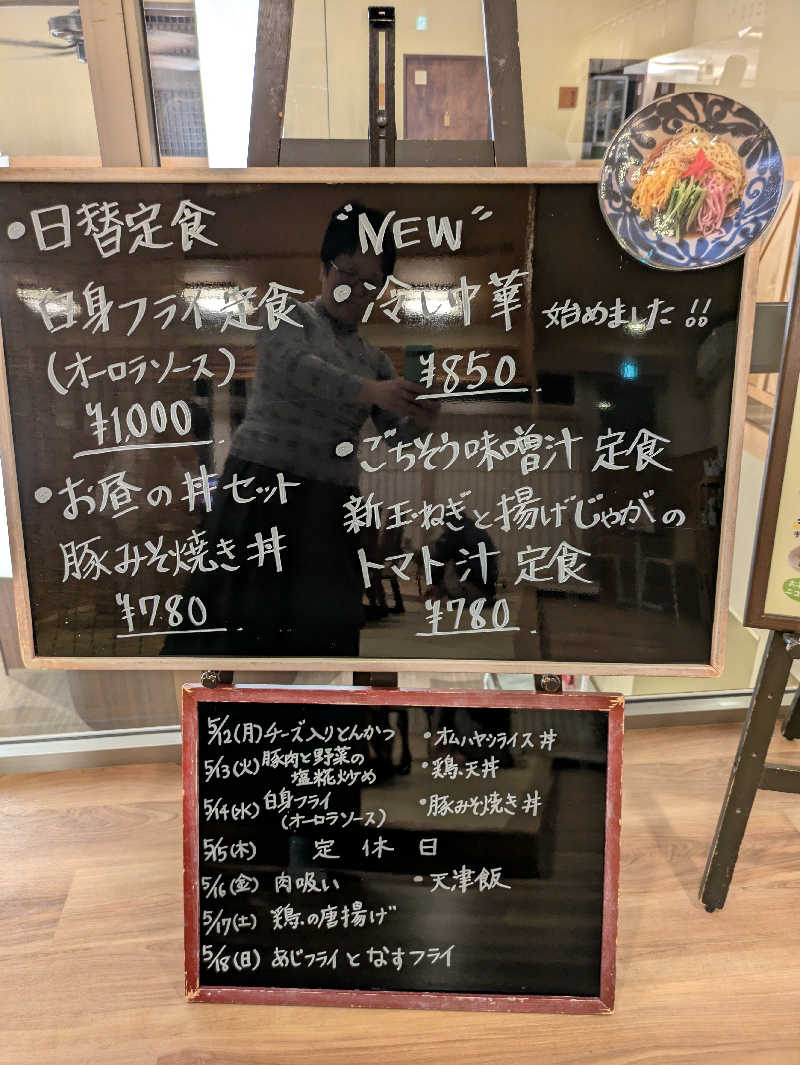 ・日替定食
白身フライ定食
(オーロラソース)
¥1,000
・お昼の丼セット
豚みそ焼き丼
¥780
"NEW"
・冷し中華 始めました!!
¥850
・ごちそう味噌汁 定食
新玉ねぎと揚げじゃがの
トマト汁 定食
¥780
5/12(月)チーズ入りとんかつ ・オムハヤシライス丼
5/13(火)豚肉と野菜の
塩糀炒め ・鶏天丼
5/14(水)白身フライ
(オーロラソース) ・豚みそ焼き丼
5/15(木) 定 休 日
5/16(金) 肉吸い ・天津飯
5/17(土) 鶏の唐揚げ
5/18(日) あじフライとなすフライ